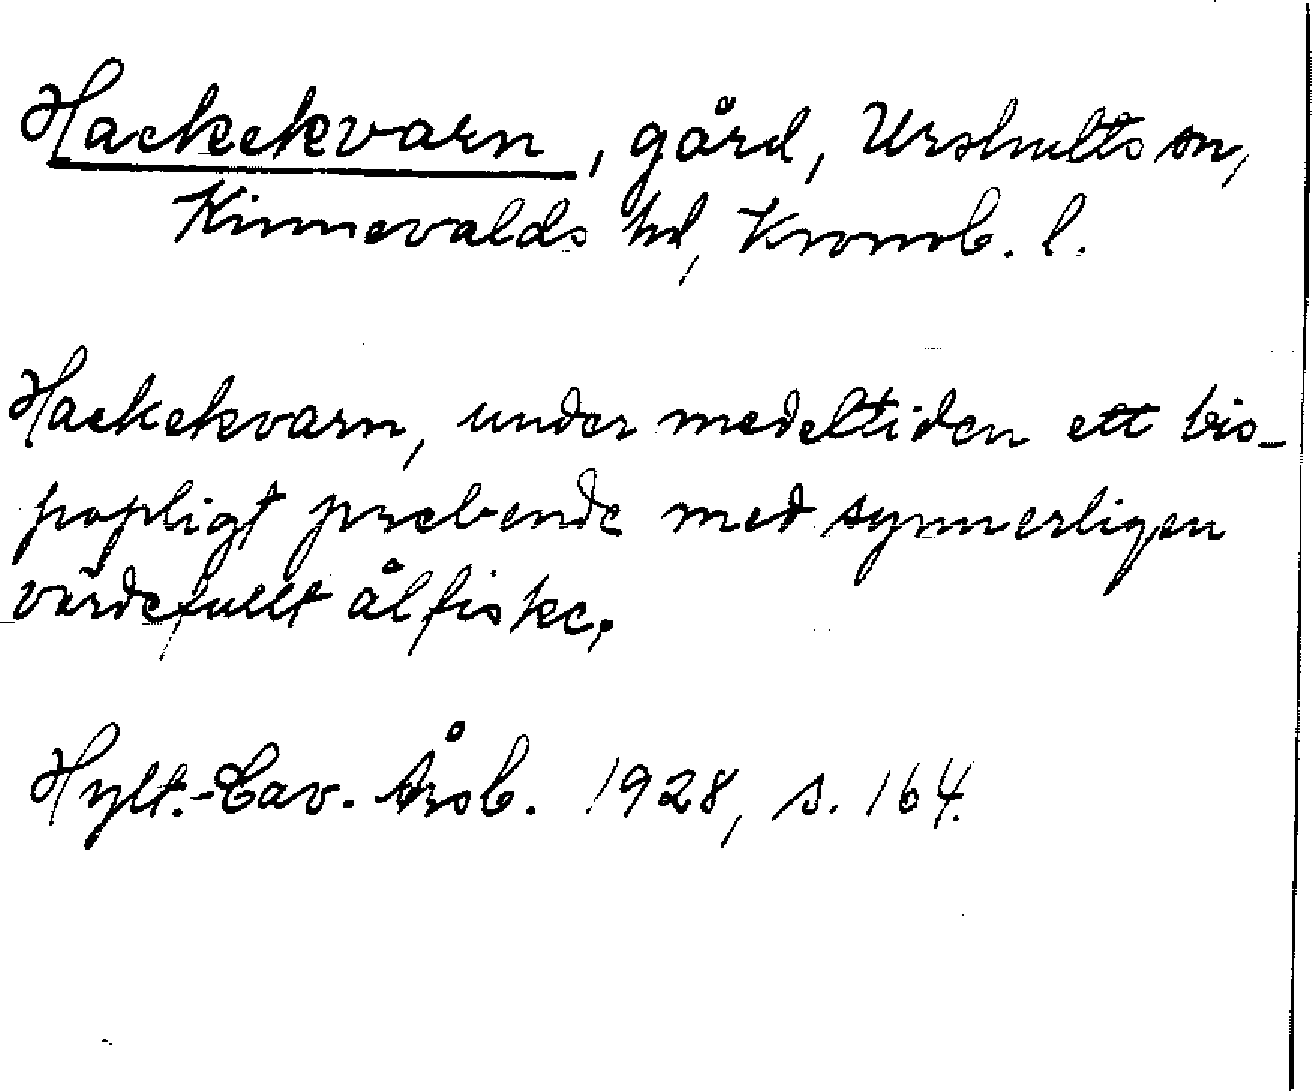 Hackekvarn, gård, Urshults sn,
Kinnevalds hd, Kronob. l.
Hackekvarn, under medeltiden ett bis-
popligt prebende med synnerligen
värdefullt ålfiske.
Hylt.-Cav. Årsb. 1928, s. 164.